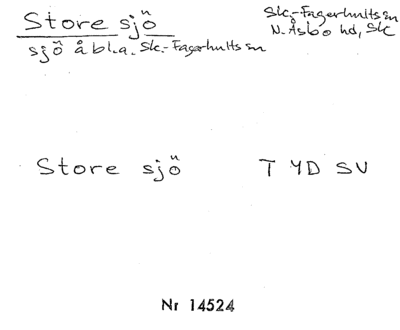 Store sjö
Sk.-Fagerhults sn
N. Åsbo hd, Sk
sjö å bl.a. Sk.-Fagerhults sn
Store sjö T 4D SV
Nr 14524